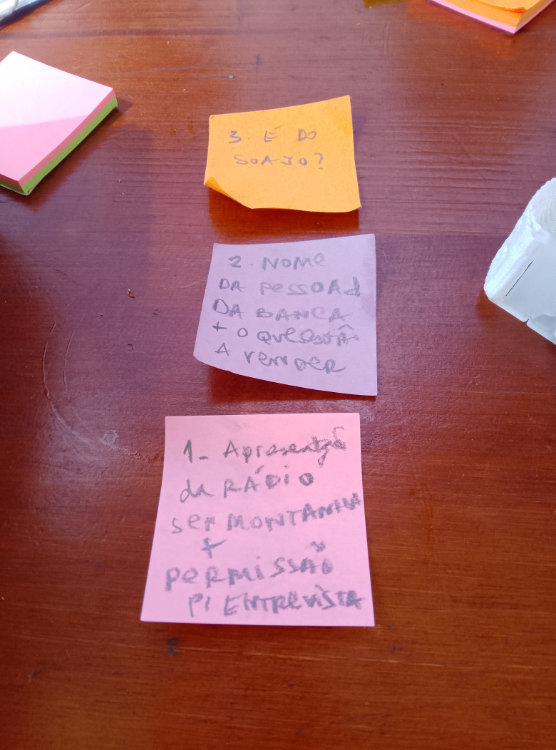 3. É DO
SOAJO?
2. NOME
DA PESSOA
DA BANCA
+ O QUE ESTÁ
A VENDER
1- Apresentação
da RÁDIO
SER MONTANHA
+
PERMISSÃO
P/ ENTREVISTA